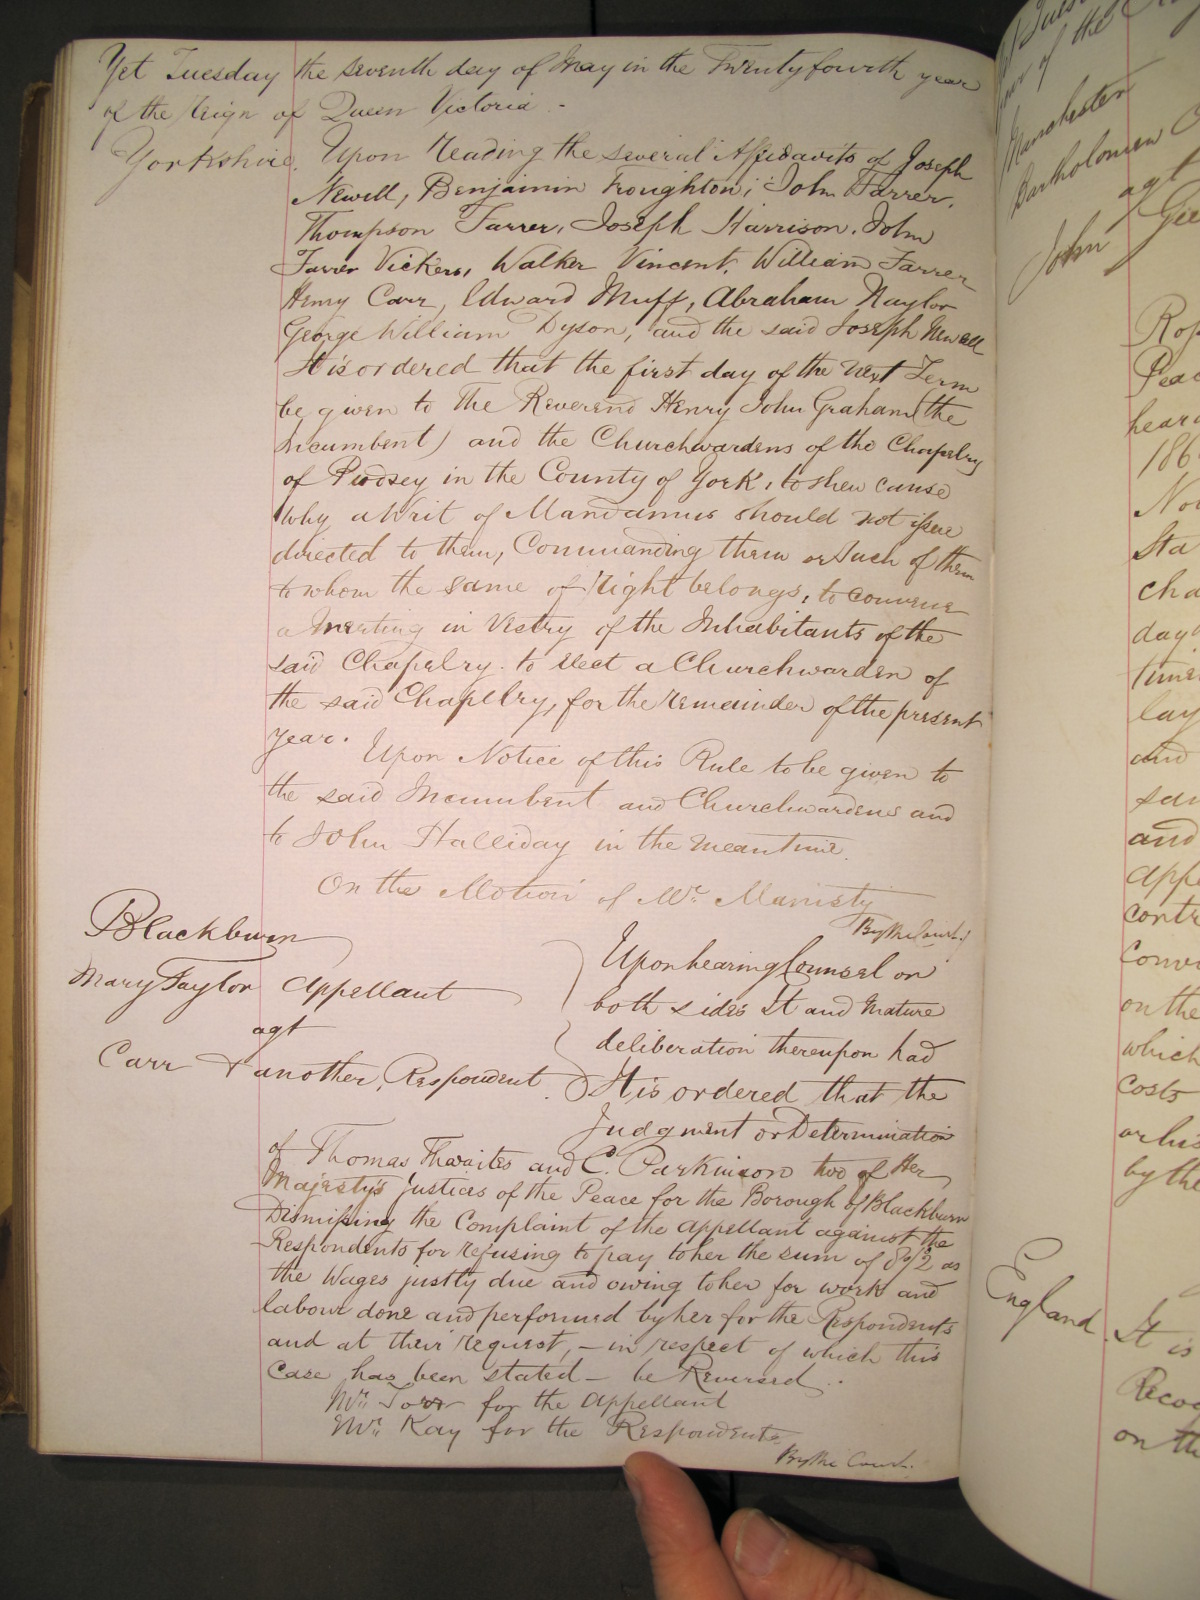 Yet Tuesday the seventh day of May in the Twenty fourth year
of the Reign of Queen Victoria -
Yorkshire. Upon Reading the several Affidavits of Joseph
Newell, Benjamin Troughton, John Farrer,
Thompson Farrer, Joseph Harrison, John
Farrer Vickers, Walker Vincent, William Farrer
Henry Carr, Edward Muff, Abraham Naylor
George William Dyson, and the said Joseph Newell
It is ordered that the first day of the next Term
be given to The Reverend Henry John Graham (the
Incumbent) and the Churchwardens of the Chapelry
of Pudsey in the County of York, to shew cause
why a Writ of Mandamus should not issue
directed to them, Commanding them or such of them
to whom the same of Right belongs, to convene
a Meeting in Vestry of the Inhabitants of the
said Chapelry to elect a Churchwarden of
the said Chapelry, for the remainder of the present
year.
Upon Notice of this Rule to be given to
the said Incumbent and Churchwardens and
to John Halliday in the meantime.
On the Motion of Mr. Manisty
By the Court.
Blackburn
Mary Taylor Appellant
agt
Carr & another, Respondent
Upon hearing Counsel on
both sides It and Mature
deliberation thereupon had
It is ordered that the
Judgment or Determination
of Thomas Thwaites and C. Parkinson two of Her
Majesty's Justices of the Peace for the Borough of Blackburn
Dismissing the Complaint of the Appellant against the
Respondents for refusing to pay to her the sum of 8s/2 as
the Wages justly due and owing to her for work and
labour done and performed by her for the Respondents
and at their request, - in respect of which this
Case has been stated - be Reversed.
Mr. Torr for the Appellant
Mr. Kay for the Respondents
By the Court.
of the
Manchester
Bartholomew
agt
John
hear
186
Sta
cha
day
time
lay
and
and
contr
on the
which
costs
or his
by the
England. It is
Recog
on th